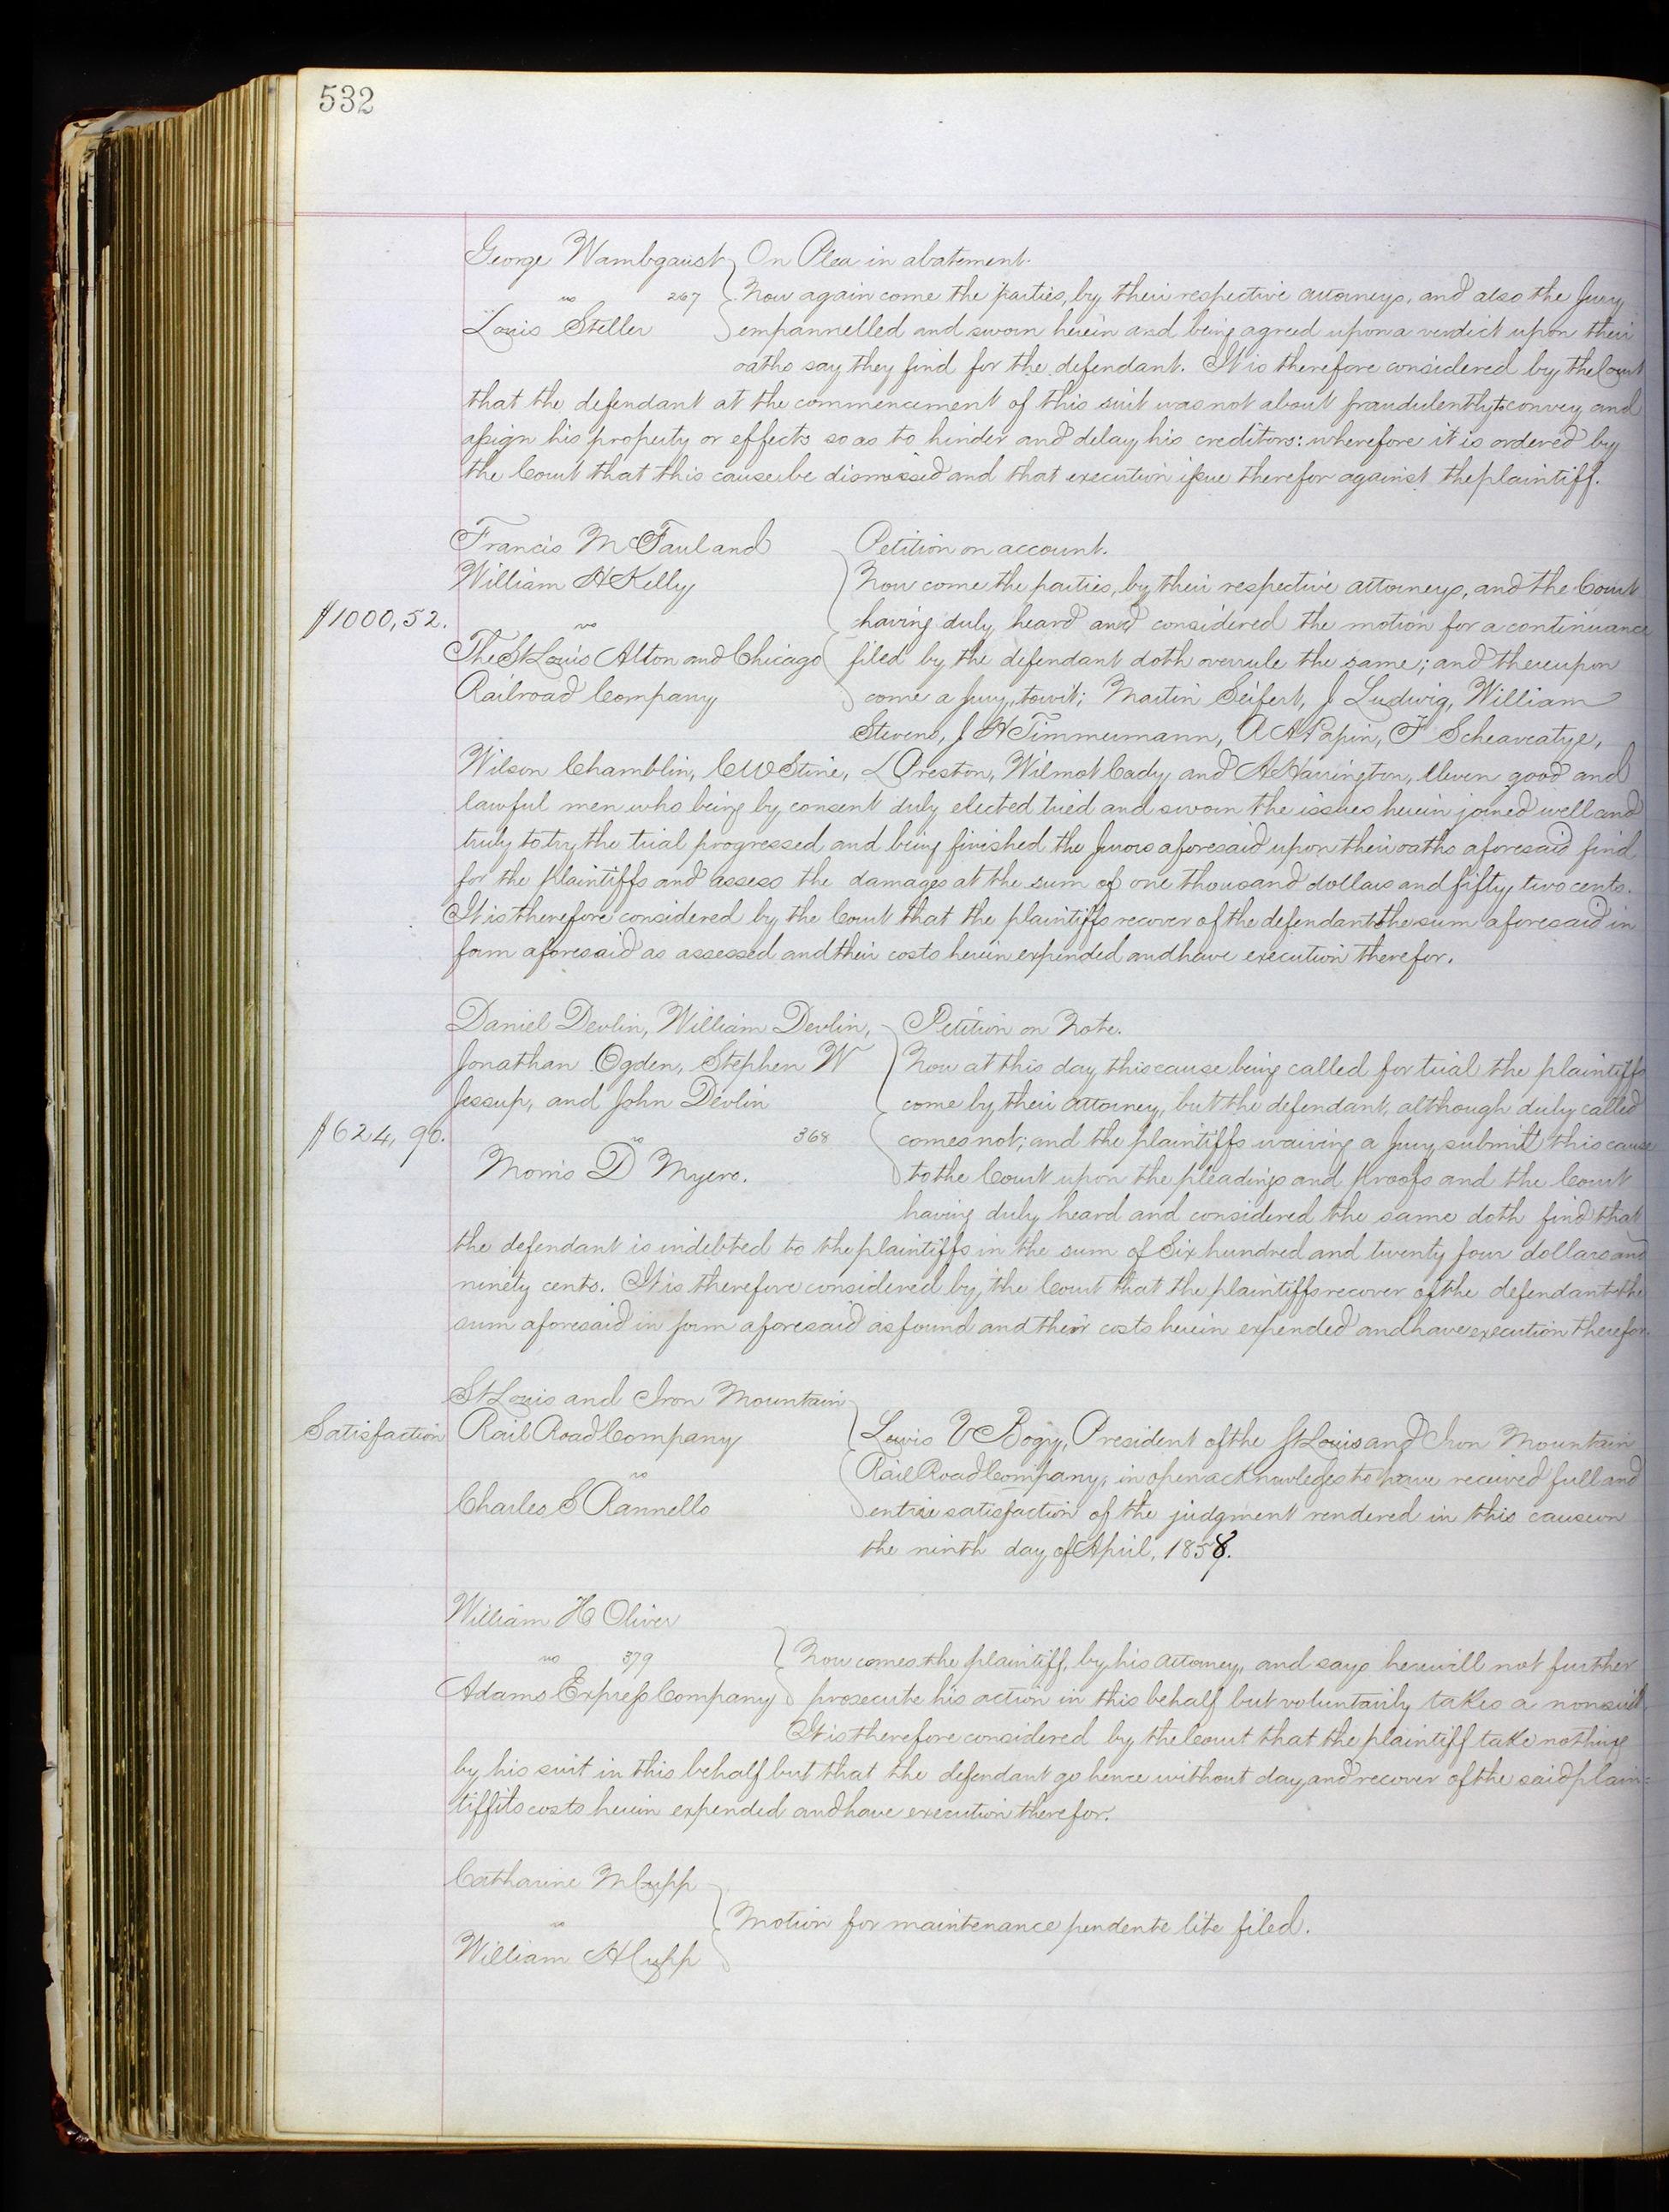 532
George Wambgaust On Plea in abatement.
vs 267 Now again come the parties, by their respective attorneys, and also the Jury
Louis Steller empannelled and sworn herein and being agreed upon a verdict upon their
oaths say they find for the defendant. It is therefore considered by the Court
that the defendant at the commencement of this suit was not about fraudulently to convey and
assign his property or effects so as to hinder and delay his creditors: wherefore it is ordered by
the Court that this cause be dismissed and that execution issue therefor against the plaintiff.
Francis McFaul and Petition on account.
William H Kelly Now come the parties, by their respective attorneys, and the Court
$1000,52. vs having duly heard and considered the motion for a continuance
The St Louis Alton and Chicago filed by the defendant doth overrule the same; and thereupon
Railroad Company come a Jury, towit; Martin Seifert, J Ludwig, William
Stevens, J H Timmermann, A A Papin, F Scheaveatye,
Wilson Chamblin, C W Stine, L Preston, Wilmot Cady and A Harrington, eleven good and
lawful men who being by consent duly elected tried and sworn the issues herein joined well and
truly to try the trial progressed and being finished the Jurors aforesaid upon their oaths aforesaid find
for the plaintiffs and assess the damages at the sum of one thousand dollars and fifty two cents.
It is therefore considered by the Court that the plaintiffs recover of the defendant the sum aforesaid in
form aforesaid as assessed and their costs herein expended and have execution therefor.
Daniel Devlin, William Devlin, Petition on Note.
Jonathan Ogden, Stephen W Now at this day this cause being called for trial the plaintiffs
Jessup, and John Devlin come by their attorney, but the defendant, although duly called
$624,90. vs 368 comes not; and the plaintiffs waiving a Jury submit this cause
Morris D Myers. to the Court upon the pleadings and proofs and the Court
having duly heard and considered the same doth find that
the defendant is indebted to the plaintiffs in the sum of Six hundred and twenty four dollars and
ninety cents. It is therefore considered by the Court that the plaintiffs recover of the defendant the
sum aforesaid in form aforesaid as found and their costs herein expended and have execution therefor.
St Louis and Iron Mountain
Satisfaction Rail Road Company Lewis V Bogy, President of the St Louis and Iron Mountain
vs Rail Road Company, in open acknowledges to have received full and
Charles S Rannells entire satisfaction of the judgment rendered in this cause on
the ninth day of April, 1858.
William H Oliver
vs 379 Now comes the plaintiff, by his attorney, and says he will not further
Adams Express Company prosecute his action in this behalf but voluntarily takes a nonsuit.
It is therefore considered by the Court that the plaintiff take nothing
by his suit in this behalf but that the defendant go hence without day and recover of the said plain=
tiff its costs herein expended and have execution therefor.
Catharine M Cupp
vs Motion for maintenance pendente lite filed.
William H Cupp